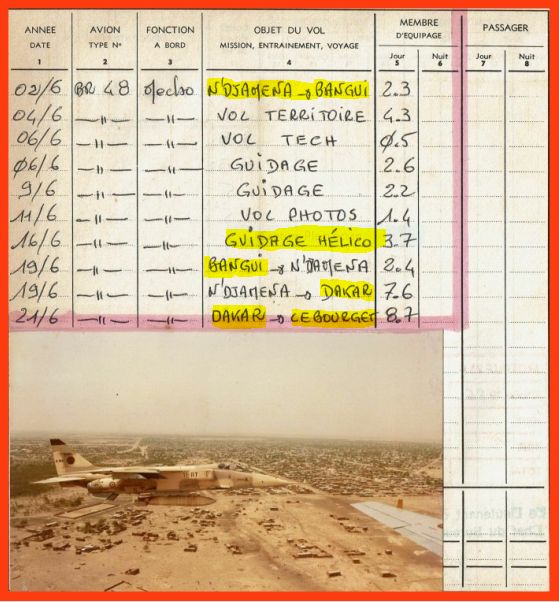 ANNEE AVION FONCTION OBJET DU VOL MEMBRE D'EQUIPAGE PASSAGER
DATE TYPE N° A BORD MISSION, ENTRAINEMENT, VOYAGE Jour Nuit Jour Nuit
1 2 3 4 5 6 7 8
02/6 BR 48 Mecbo N'DJAMENA → BANGUI 2.3
04/6 —"— —"— VOL TERRITOIRE 4.3
06/6 —"— —"— VOL TECH 0.5
06/6 —"— —"— GUIDAGE 2.6
9/6 —"— —"— GUIDAGE 2.2
11/6 —"— —"— VOL PHOTOS 1.4
16/6 —"— —"— GUIDAGE HÉLICO 3.7
19/6 —"— —"— BANGUI → N'DJAMENA 2.4
19/6 —"— —"— N'DJAMENA → DAKAR 7.6
21/6 —"— —"— DAKAR → LE BOURGET 8.7